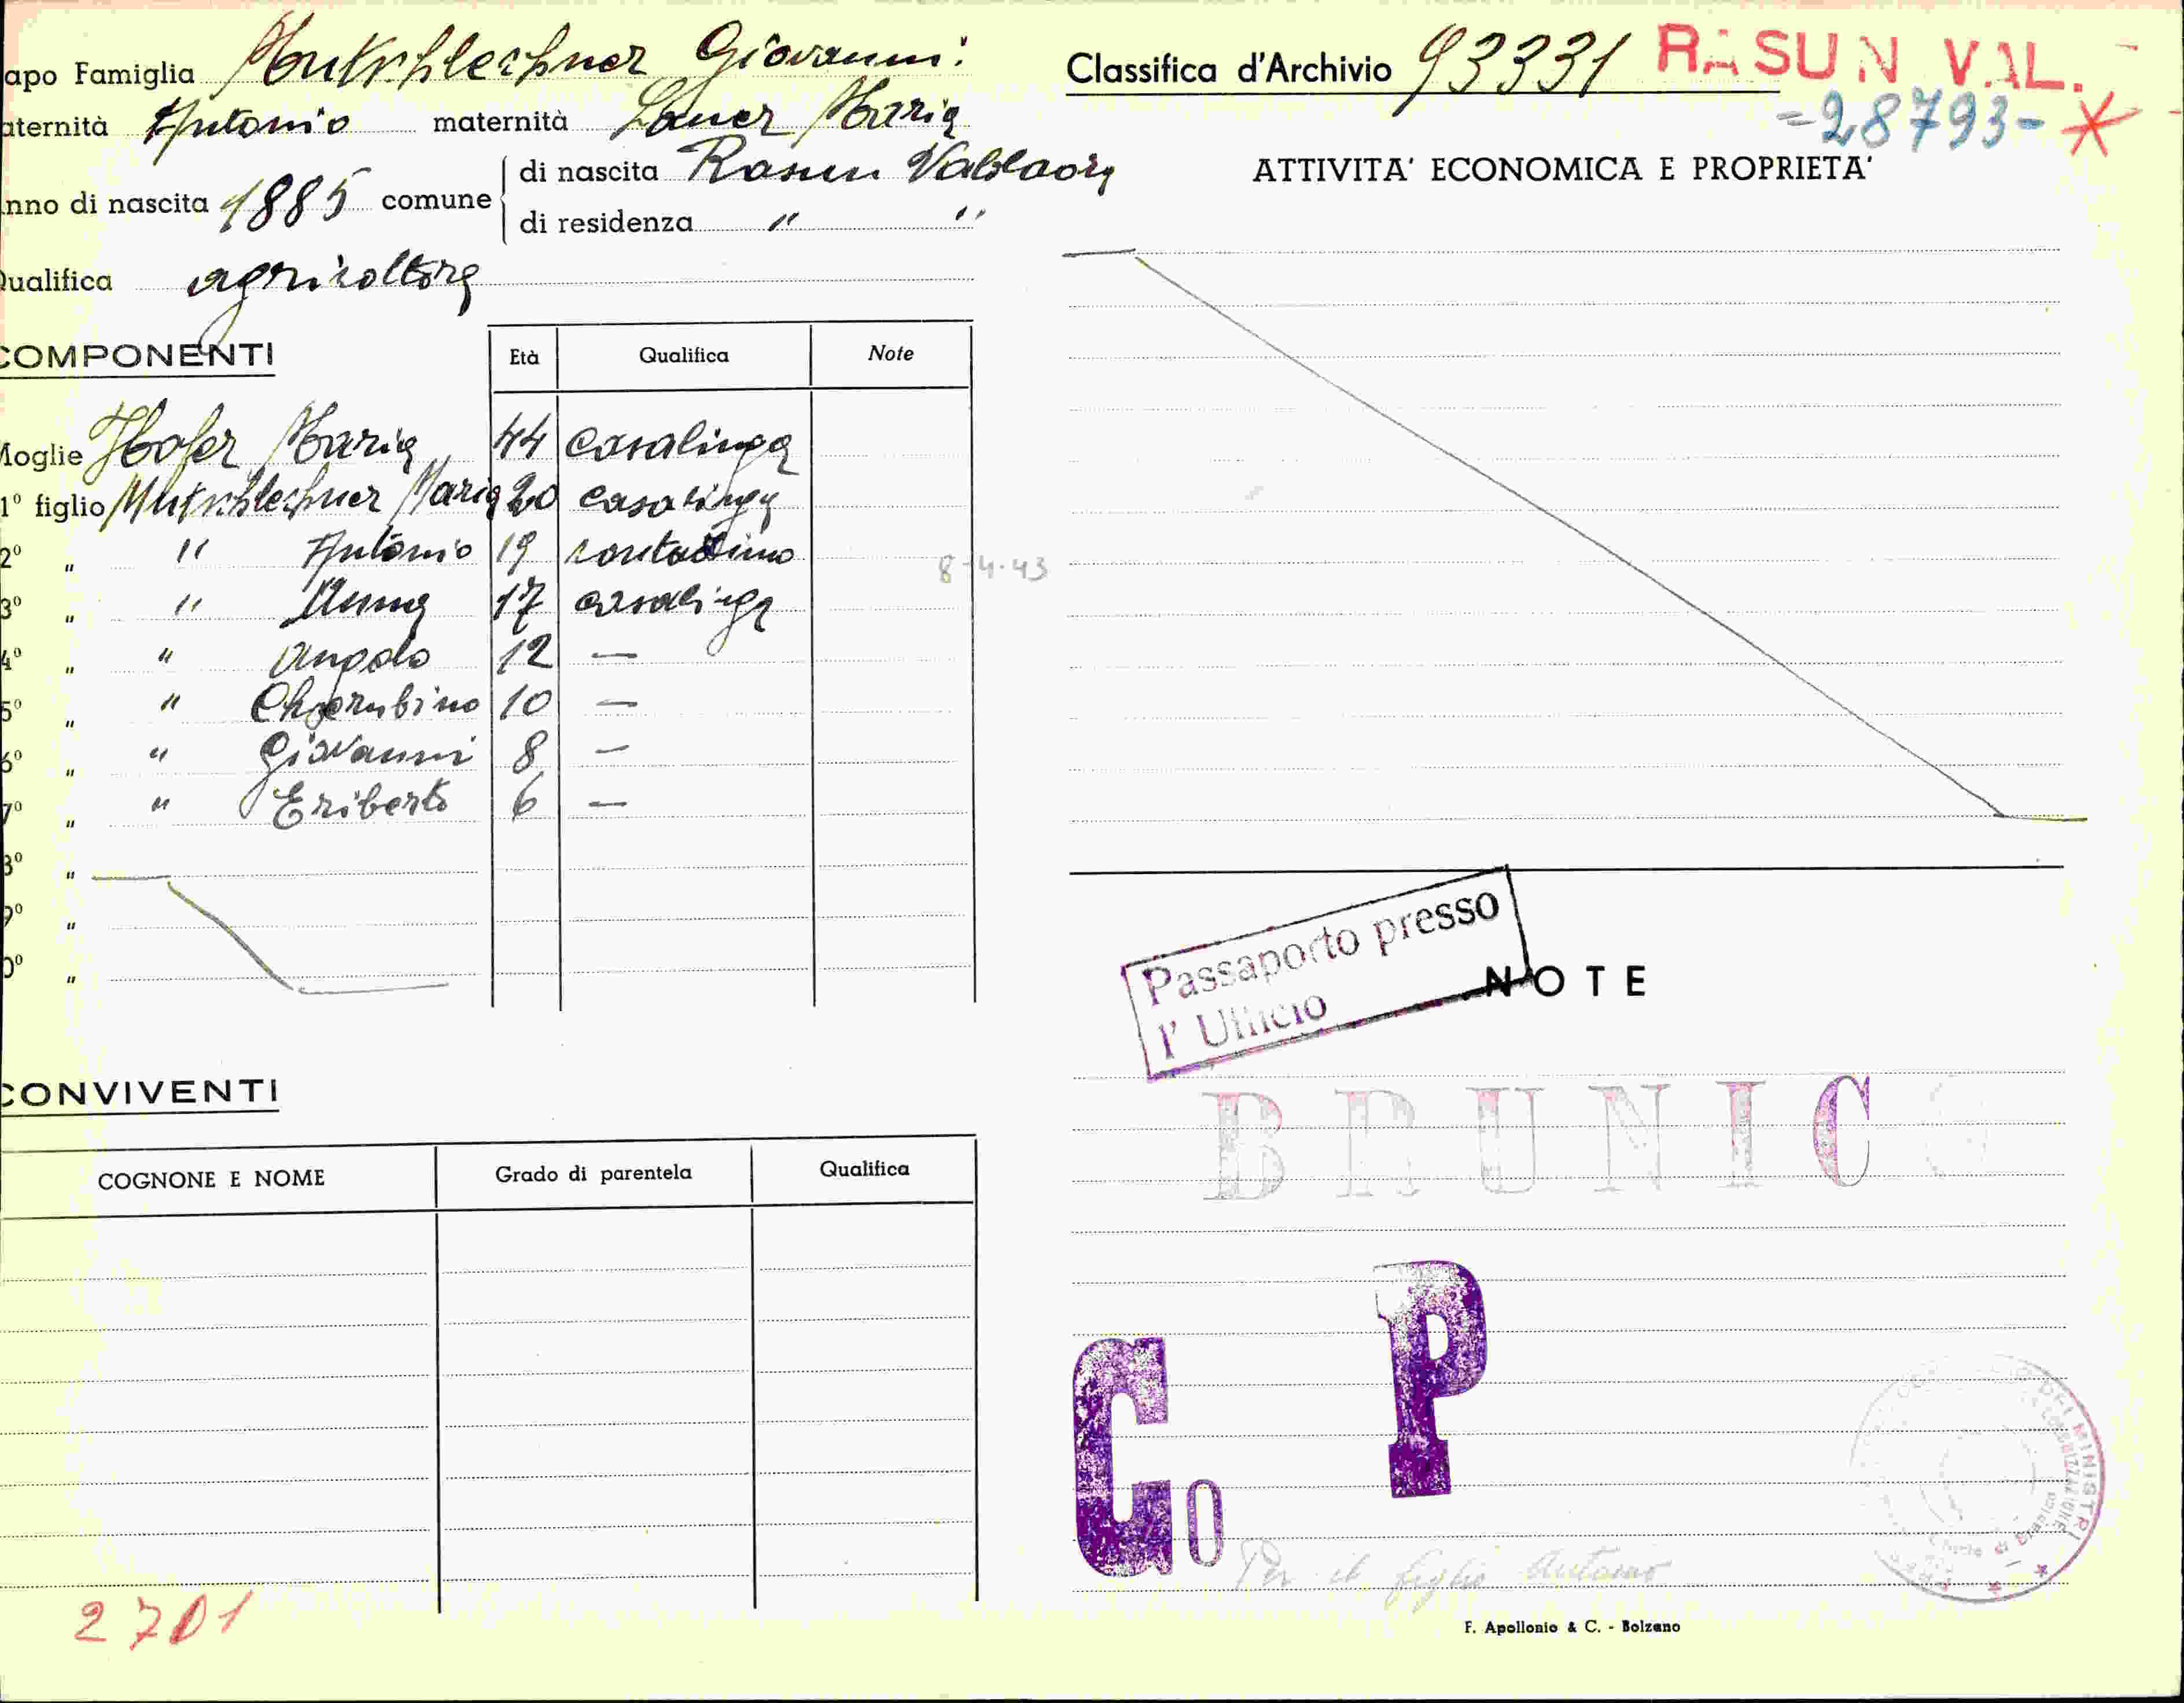 apo Famiglia Mutschlechner Giovanni:
aternità Antonio maternità Lauer Maria
nno di nascita 1885 comune di nascita Rasun Valdaora
di residenza " "
Qualifica agricoltore
COMPONENTI
Età Qualifica Note
Moglie Hofer Maria 44 casalinga
1º figlio Mutschlechner Maria 20 casalinga
2º " " Antonio 19 contadino 8-4-43
3º " " Anna 17 casalinga
4º " " Angelo 12 —
5º " " Cherubino 10 —
6º " " Giovanni 8 —
7º " " Eriberto 6 —
8º "
9º "
0º "
CONVIVENTI
COGNONE E NOME Grado di parentela Qualifica
2701
Classifica d'Archivio 93331 RASUN VAL.
=28793-
ATTIVITA' ECONOMICA E PROPRIETA'
Passaporto presso
l' Ufficio
NOTE
BRUNICO
P
Co
Per il figlio Antonio
F. Apollonio & C. - Bolzano